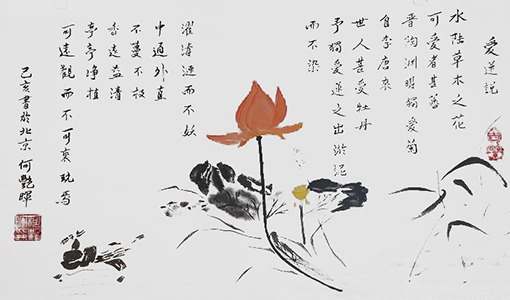 愛莲説
水陸草木之花
可愛者甚蕃
晋陶渊明獨愛菊
自李唐来
世人甚愛牡丹
予獨愛莲之出淤泥
而不染
濯清漣而不妖
中通外直
不蔓不枝
香遠益清
亭亭净植
可遠觀而不可亵玩焉
己亥書於北京何艷暉